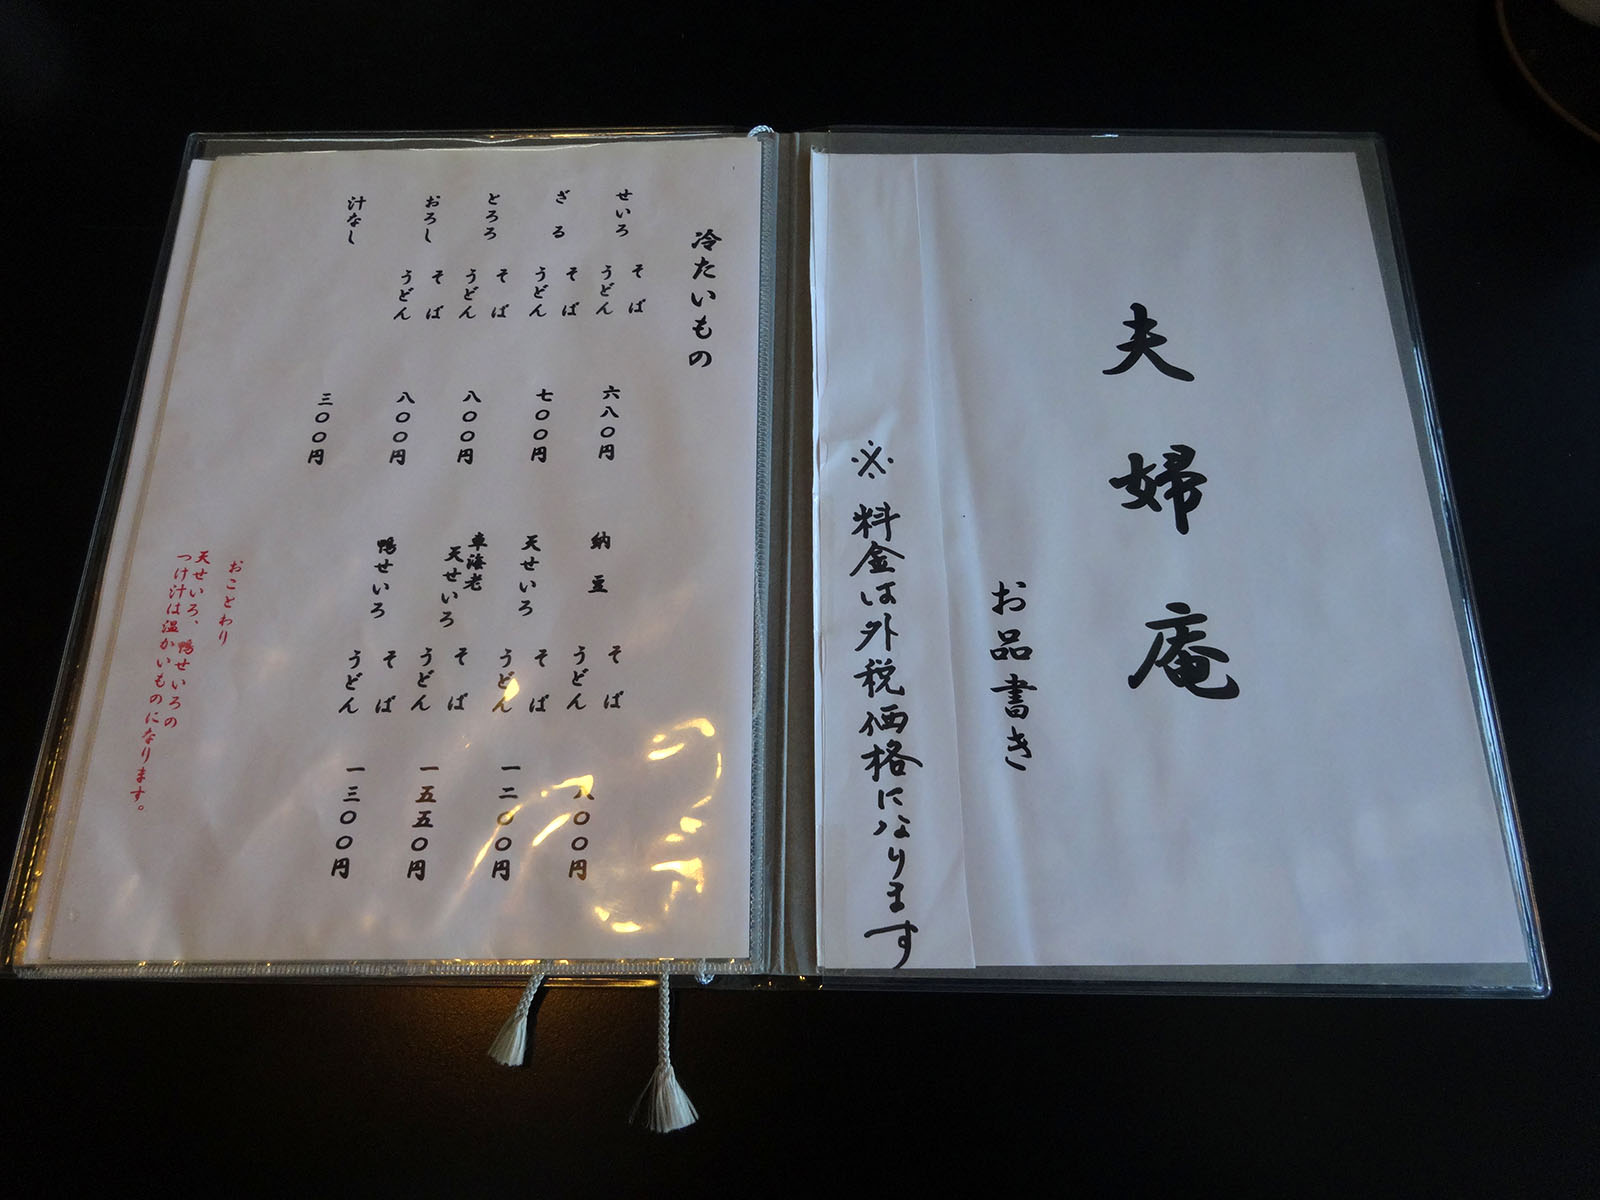 夫婦庵
お品書き
※料金は外税価格になります
冷たいもの
せいろ そば うどん 六八〇円
ざる そば うどん 七〇〇円
とろろ そば うどん 八〇〇円
おろし そば うどん 八〇〇円
汁なし 三〇〇円
納豆 そば うどん 八〇〇円
天せいろ そば うどん 一二〇〇円
車海老天せいろ そば うどん 一五五〇円
鴨せいろ そば うどん 一三〇〇円
おことわり
天せいろ、鴨せいろの
つけ汁は温かいものになります。